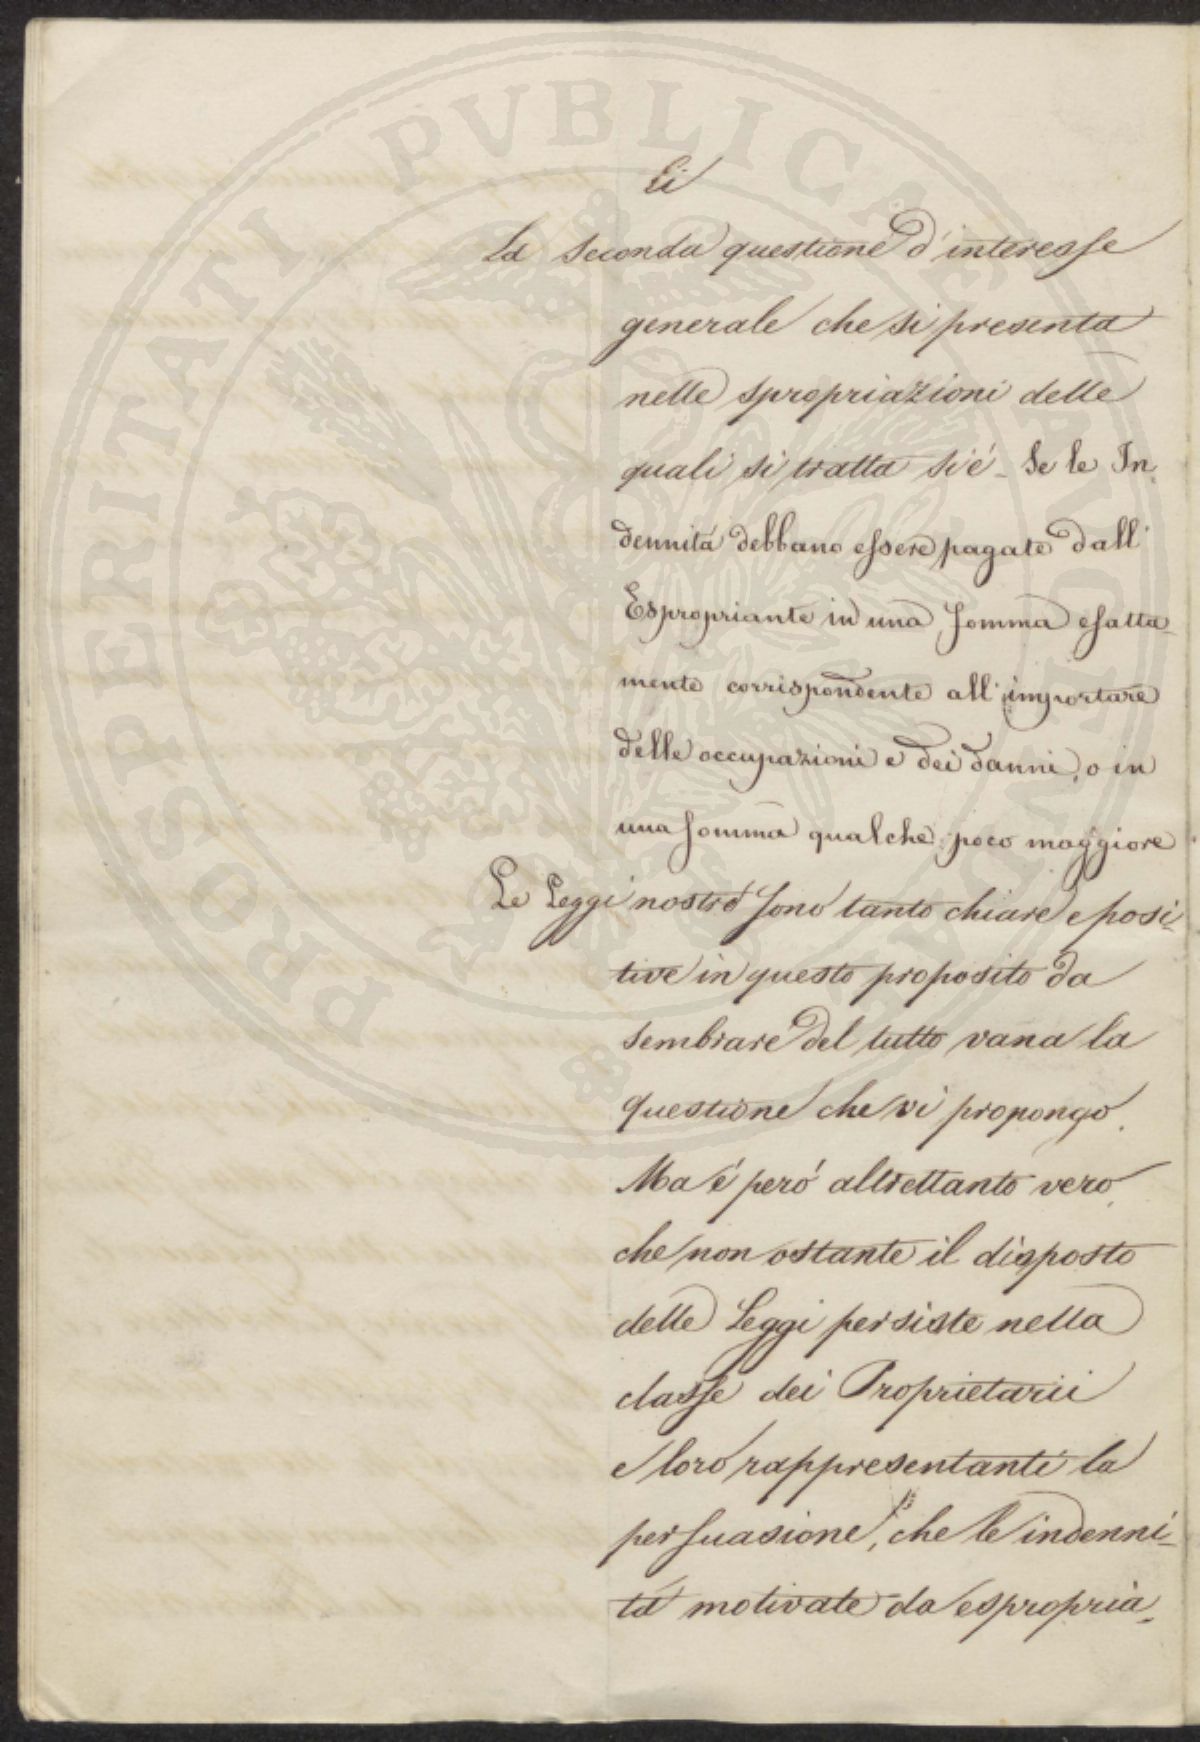 Ei
La seconda questione d'interesse
generale che si presenta
nelle spropriazioni delle
quali si tratta si é - Se le In-
dennitá debbano essere pagate dall'
Espropriante in una somma esatta-
mente corrispondente all'importare
delle occupazioni e dei danni, o in
una somma qualche poco maggiore
Le Leggi nostre sono tanto chiare e posi-
tive in questo proposito da
sembrare del tutto vana la
questione che vi propongo.
Ma é peró altrettanto vero,
che non ostante il disposto
delle Leggi persiste nella
classe dei Proprietarii
e loro rappresentanti la
persuasione, che le indenni-
tá motivate da espropria-
PROSPERITATI PVBLICAE AVGENDAE